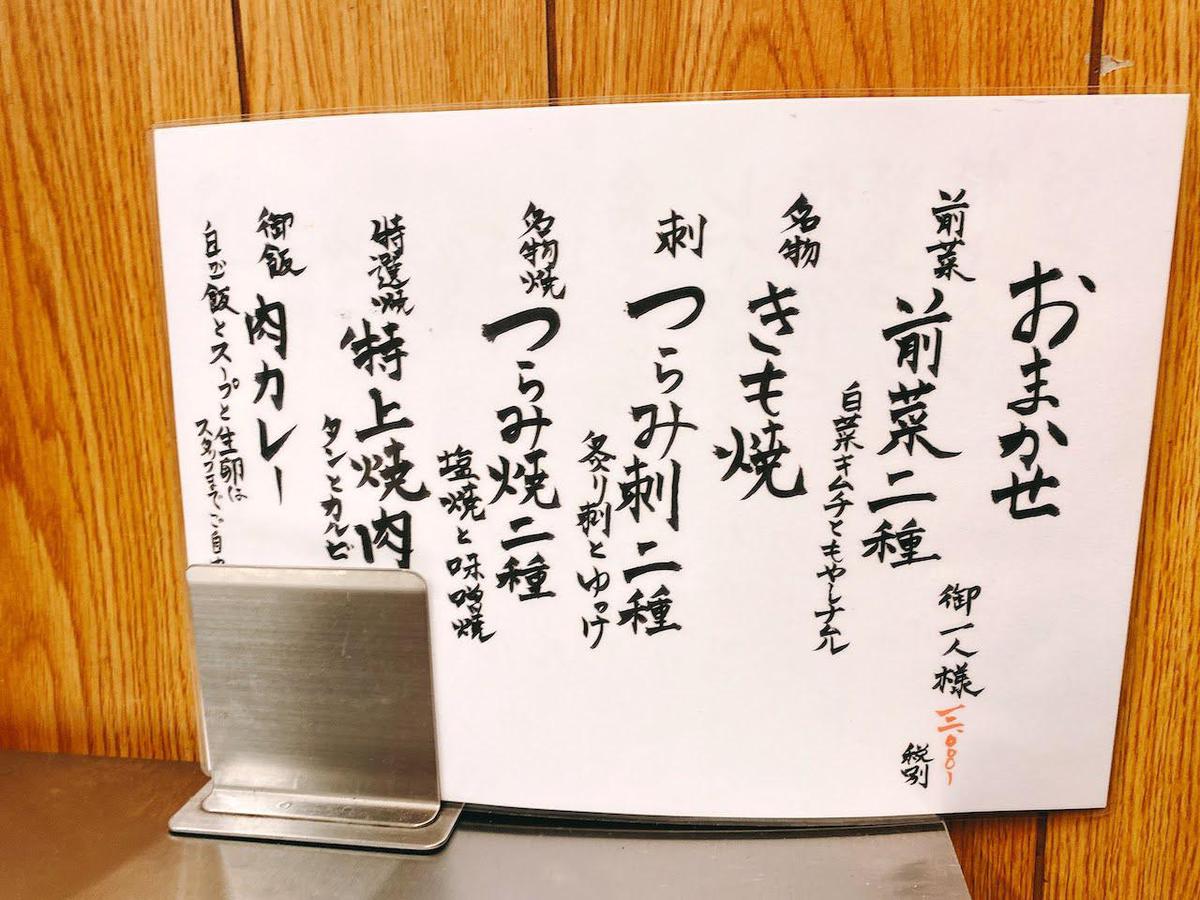 おまかせ
御一人様 三、〇〇〇ー
税別
前菜 前菜二種
白菜キムチともやしナムル
名物 きも焼
刺 つらみ刺二種
炙り刺とゆっけ
名物焼 つらみ焼二種
塩焼と味噌焼
特選焼 特上焼肉
タンとカルビ
御飯 肉カレー
白ご飯とスープと生卵は
スタッフまでご自